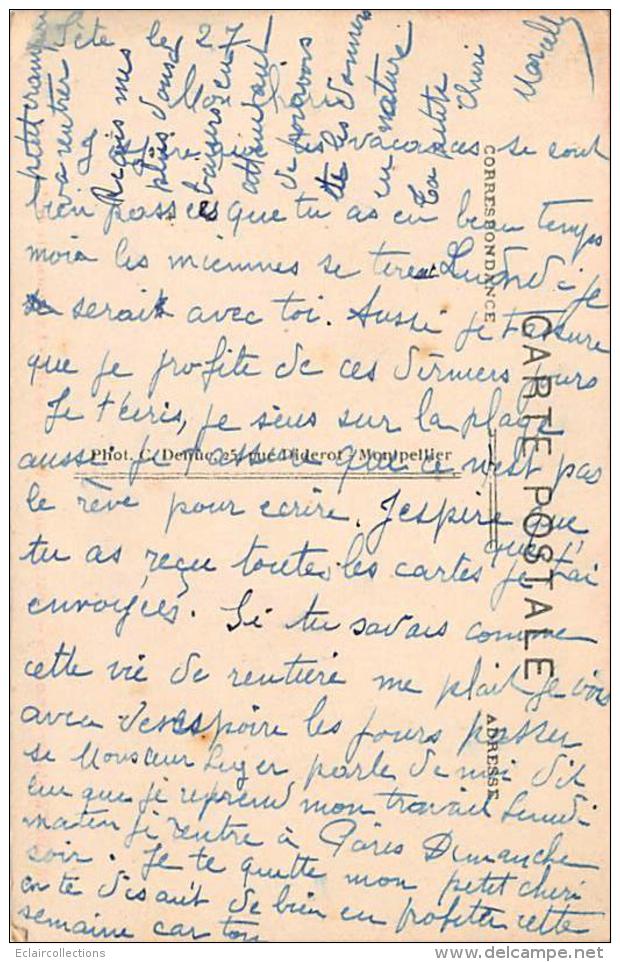 Sète le 27
Mon cheri
J'espère que tes vacances se sont
bien passées que tu as eu beau temps
moi les miennes se tire Lundi je
serait avec toi. Aussi je t'assure
que je profite de ces derniers jours
Je t'ecris, je suis sur la plage
aussi je t'assure que ce n'est pas
le rêve pour ecrire. J'espire que
tu as reçu toutes les cartes que je t'ai
envoyées. Si tu savais comme
cette vie de rentiere me plait je vois
avec desespoire les jours passer
si Monsieur Luger parle de moi dit
lui que je reprend mon travail Lundi
matin je rentre à Paris Dimanche
soir. Je te quitte mon petit cheri
en te disant de bien en profiter cette
semaine car ton
petit
va rentrer
Reçois mes
plus doux
baisers en
attendant
de pouvoir
te les donner
en nature
Ta petite
cheri
Marcelle
CORRESPONDANCE
CARTE POSTALE
ADRESSE
Phot. C. Delnuc, 25, rue Diderot - Montpellier
Eclaircollections